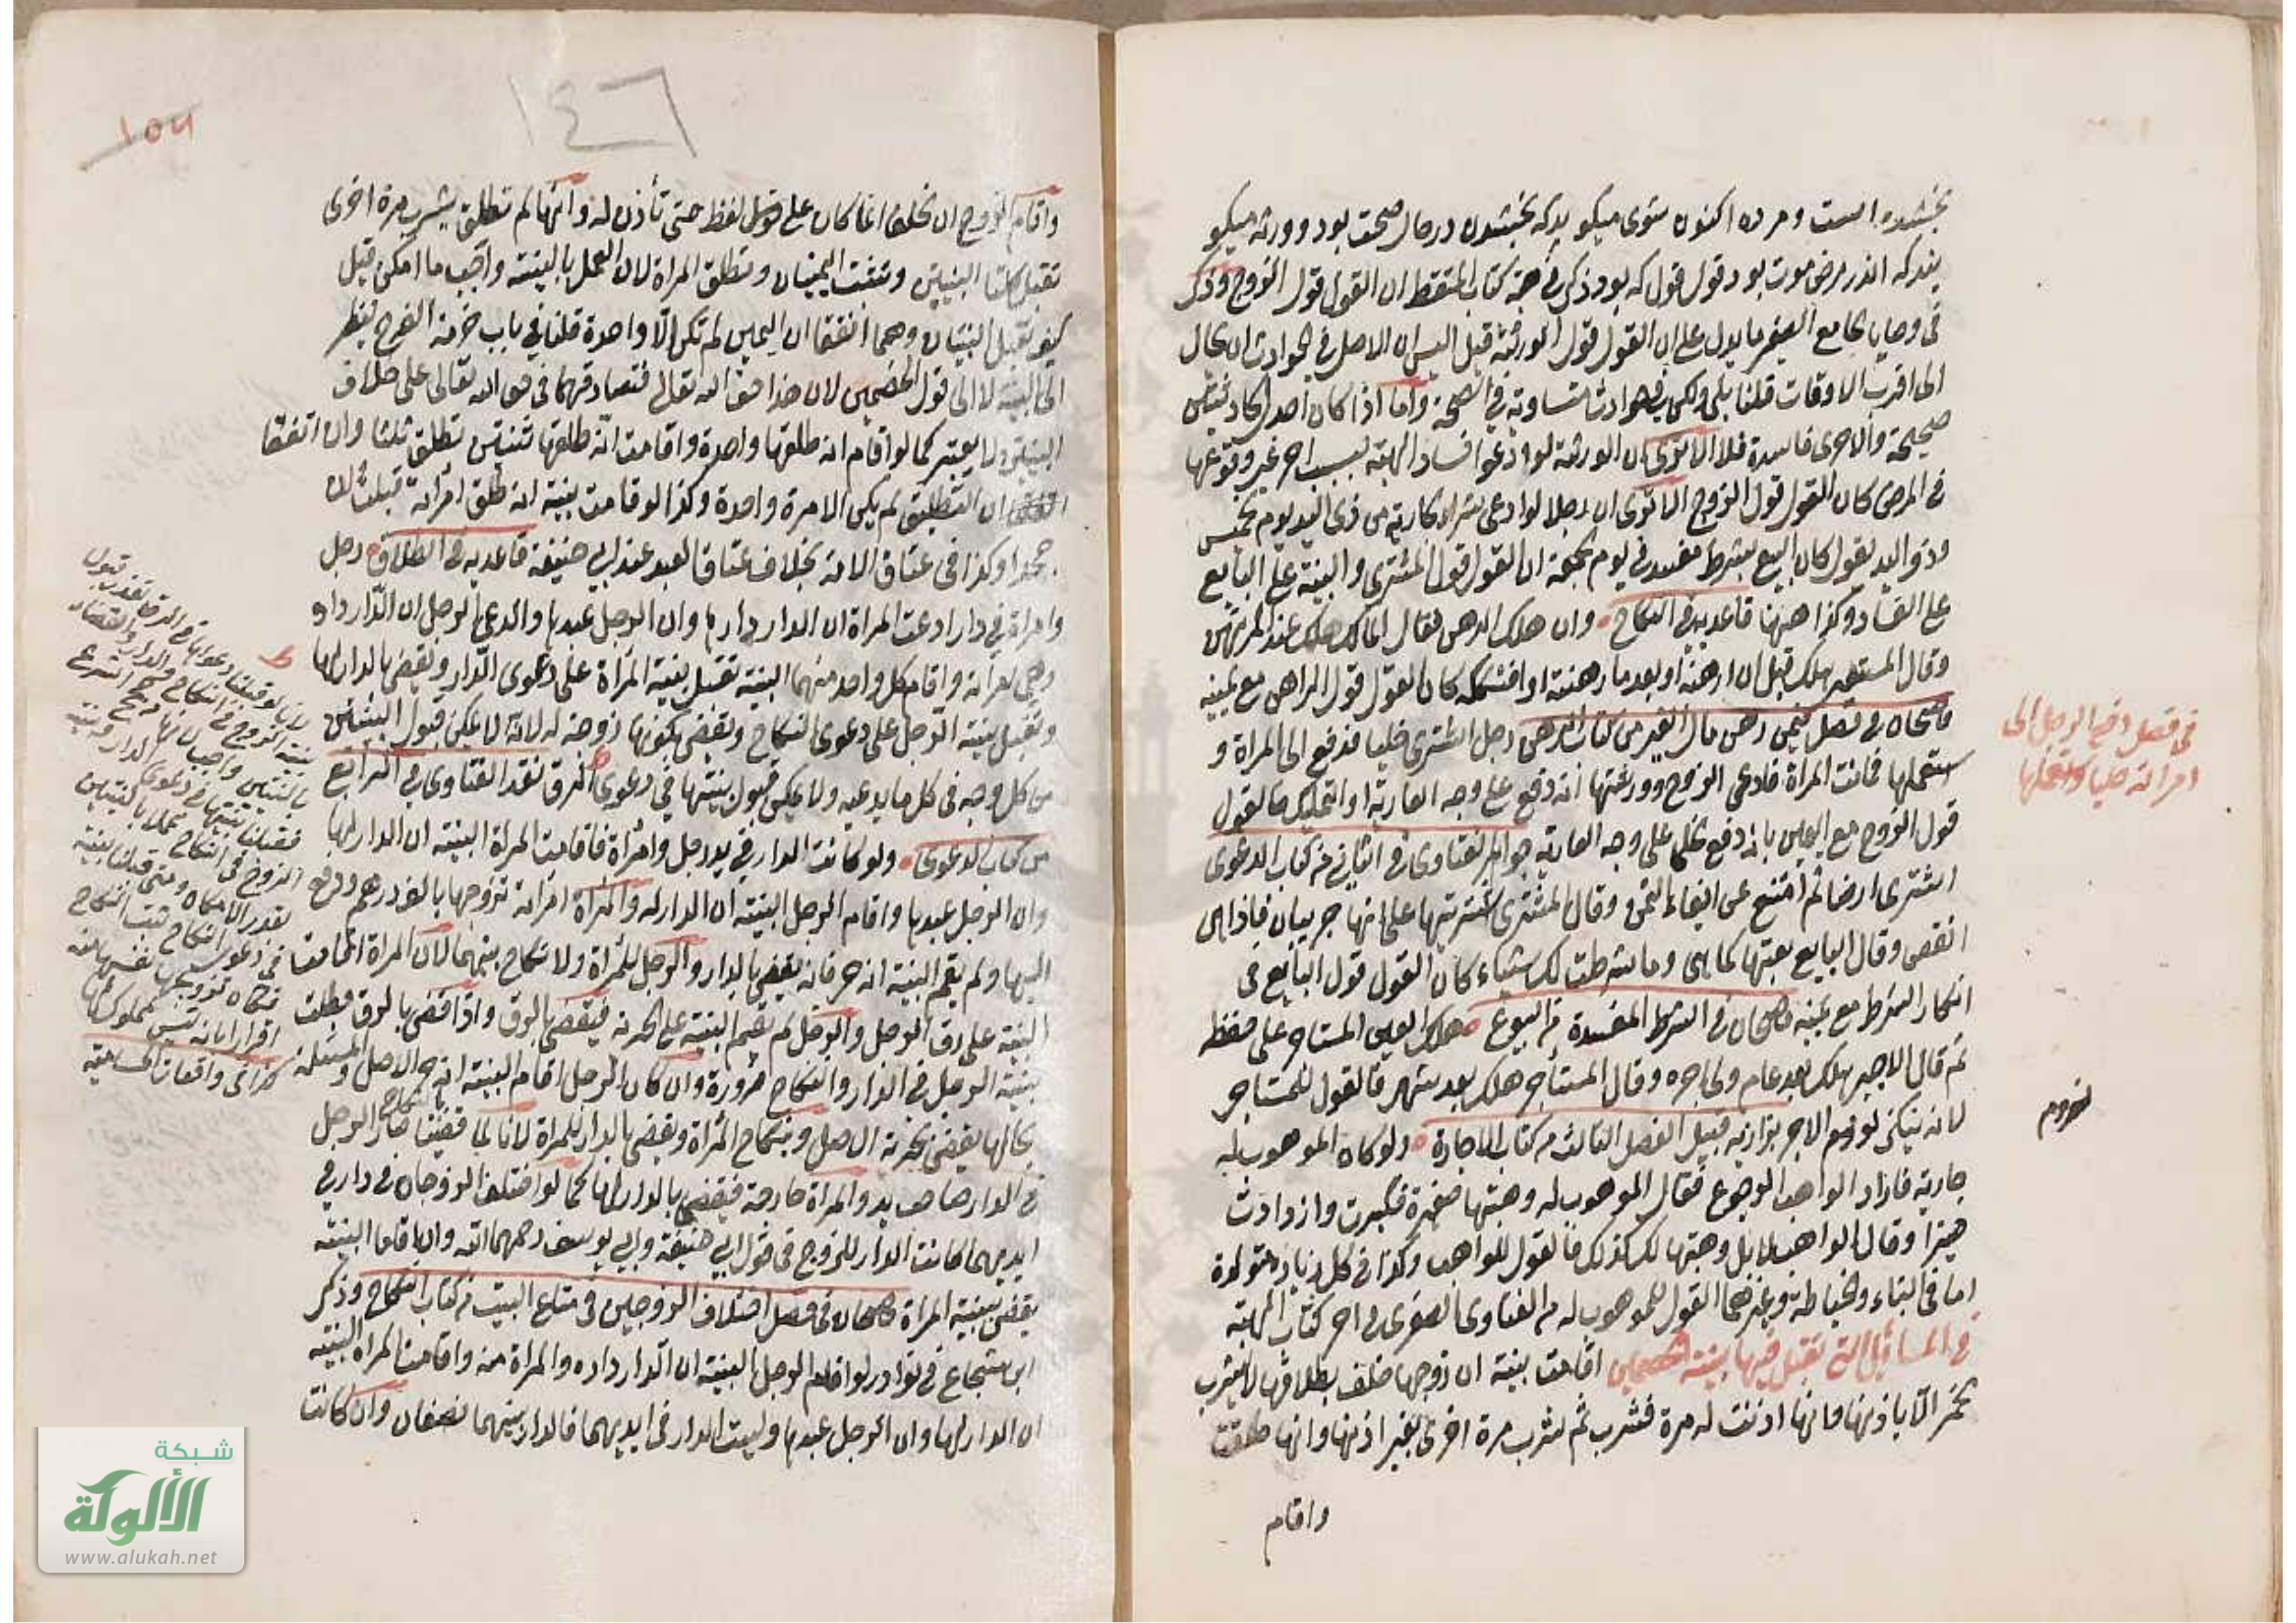 بخشيده است ومرده اكنون شوى ميكويد كه بخشيدن در حال صحت بود وورثه ميكو
يند كه اندر مرض موت بود قول قول كه بود ذكر في هبة كتاب الملتقط ان القول قول الزوج وذكر
في وصايا الجامع الصغير ما يدل على ان القول قول الورثة قيل اليس ان الاصل في الحوادث ان يحال
الى اقرب الاوقات قلنا بلى ولكن في حوادث متساوية في الصحة واما اذا كان احد الحادثتين
صحيحة والاخرى فاسدة فلا الا ترى ان الورثة لو ادعوا فساد الهبة بسبب اخر غير وقوعها
في المرض كان القول قول الزوج الا ترى ان رجلا لو ادعى شراء جارية من ذى اليد يوم الخميس
وذو اليد يقول كان البيع بشرط مفسد في يوم الجمعة ان القول قول المشترى والبينة على البايع
على الفساد وكذا ههنا قاعديه في النكاح وان هلك الرهن فقال المالك هلك عند المرتهن
وقال المستعير هلك قبل ان ارهنه او بعد ما رهنته او افتككته كان القول قول الراهن مع يمينه
قاضيخان في فصل فيمن رهن مال الغير من كتاب الرهن رجل اشترى حليا فدفع الى المراة و
استعملها فماتت المراة فادعى الزوج وورثتها انه دفع على وجه العارية او التمليك فالقول
قول الزوج مع اليمين بانه دفع على وجه العارية جواهر الفتاوى في الثاني من كتاب الدعوى
اشترى ارضا ثم امتنع عن ايفاء الثمن وقال المشترى اشتريتها على انها جريبان فاذا هي
انقص وقال البايع بعتها كما هي وما شرطت لك شيئا كان القول قول البايع في
انكار الشرط مع يمينه قاضيخان في الشرط المفسدة من البيوع هلك العين المستاجر على حفظه
ثم قال الاجير هلك بعد عام ولي اجره وقال المستاجر هلك بعد شهر فالقول للمستاجر
لانه ينكر لزوم الاجر بزازيه قبيل الفصل الثالث من كتاب الاجارة ولو كان الموهوب له
جارية فاراد الواهب الرجوع فقال الموهوب له وهبتها صغيرة فكبرت وازدادت
خيرا وقال الواهب لا بل وهبتها لك كذلك فالقول للواهب وكذا في كل زيادة متولدة
اما في البناء والخياطة وغيرهما القول للموهوب له من الفتاوى الصغرى في اخر كتاب الهبة
في المسائل التي تقبل فيها بينة الخصمين اقامت بينة ان زوجها حلف بطلاقها لا يشرب
الخمر الا باذنها وانها اذنت له مرة فشرب ثم شرب مرة اخرى بغير اذنها وانها طلقت
واقام
في فصل دفع الرجل الى
امراته حليا واستعملها
لزوم
١٤٦
١٥٧
واقام الزوج ان الحلف انما كان على قوله لفظ حتى تأذن له وانها لم تطلق بشرب مرة اخرى
تقبل كلتا البينتين وتثبت اليمينان وتطلق المراة لان العمل بالبينة واجب ما امكن قيل
كيف تقبل البينتان وهما اتفقا ان اليمين لم تكن الا واحدة قلنا في باب حرمة الفرج ينظر
الى البينة لا الى قول الخصمين لان هذا حق الله تعالى فتصادقهما في حق الله تعالى على خلاف
البينتين لا يعتبر كما لو اقام انه طلقها واحدة واقامت انه طلقها ثنتين تطلق ثلثا وان اتفقا
ان التطليق لم يكن الا مرة واحدة وكذا لو قامت بينة انه طلق امرأته قبلت وان
جحدا وكذا في عتاق الامة بخلاف عتاق العبد عند ابي حنيفة قاعديه في الطلاق رجل
وامراة في دار ادعت المراة ان الدار دارها وان الرجل عبدها وادعى الرجل ان الدار داره
وهي امرأته واقام كل واحد منهما البينة تقبل بينة المراة على دعوى الدار ويقضى بالدار لها
وتقبل بينة الرجل على دعوى النكاح ويقضى بكونها زوجة له لانه لا يمكن قبول البينتين
من كل وجه في كل ما يدعيه ولا يمكن قبول بينتها في دعوى الرق نقد الفتاوى في الرابع
من كتاب الدعوى ولو كانت الدار في يد رجل وامرأة فاقامت المراة البينة ان الدار لها
وان الرجل عبدها واقام الرجل البينة ان الدار له والمراة امرأته تزوجها بالف درهم ودفع
اليها ولم يقم البينة انه حر فانه يقضى بالدار والرجل للمرأة ولا نكاح بينهما لان المراة اقامت
البينة على رق الرجل والرجل لم يقم البينة على الحرية فيقضى بالرق واذا قضى بالرق بطلت
بينة الرجل في الدار والنكاح ضرورة وان كان الرجل اقام البينة انه حر الاصل والمسئلة
بحالها يقضى بحرية الاصل وبنكاح المرأة ويقضى بالدار للمراة لانا لما قضينا بالنكاح صار الرجل
في الدار صاحب يد والمراة خارجة فيقضى بالدار لها كما لو اختلف الزوجان في دار في
ايديهما كانت الدار للزوج في قول ابي حنيفة وابي يوسف رحمهما الله وان اقاما البينة
يقضى ببينة المراة قاضيخان في فصل اختلاف الزوجين في متاع البيت من كتاب النكاح وذكر
ابن شجاع في نوادر لو اقام الرجل البينة ان الدار داره والمراة منه واقامت المراة البينة
ان الدار لها وان الرجل عبدها وليست الدار في ايديهما فالدار بينهما نصفان وان كانت
بينة الزوج في النكاح والدار والقضاء
بالبينتين واجب
فقبلنا بينتها في دعوى الدار وبينة
الزوج في النكاح عملا بالبينتين
بقدر الامكان ومتى قبلنا بينته
في دعوى النكاح ثبت النكاح
فكان تزويجها نفسها منه
اقرارا بانه ليس مملوك لها
كذا في واقعات الحسامية
شبكة
الألوكة
www.alukah.net